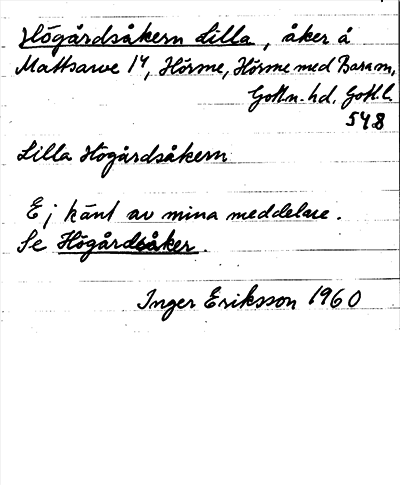 Högårdsåkern Lilla, åker å
Mattsarve 14, Hörsne, Hörsne med Bara sn,
Gotln. hd. Gotl l.
548
Lilla Högårdsåkern
Ej känt av mina meddelare.
Se Högårdsåker.
Inger Eriksson 1960